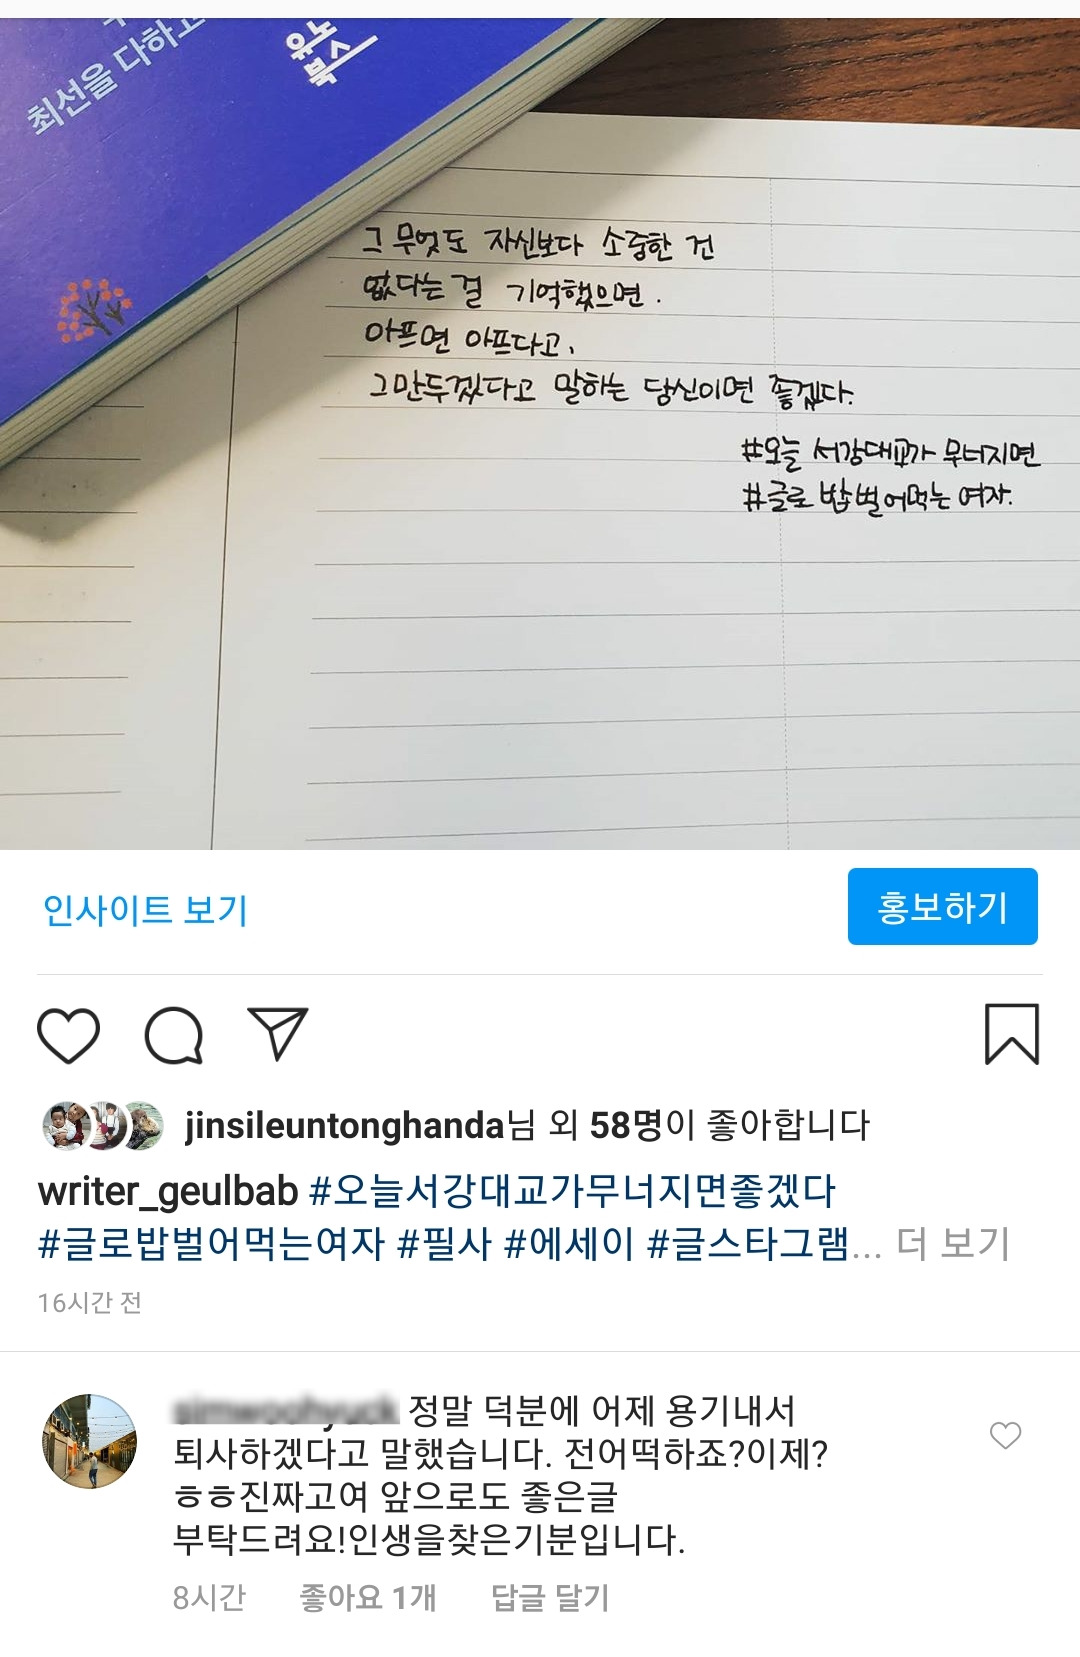 최선을 다하고
유노
북스
그 무엇도 자신보다 소중한 건
없다는 걸 기억했으면.
아프면 아프다고,
그만두겠다고 말하는 당신이면 좋겠다.
#오늘 서강대교가 무너지면
#글로 밥벌어먹는 여자.
인사이트 보기
홍보하기
jinsileuntonghanda님 외 58명이 좋아합니다
writer_geulbab #오늘서강대교가무너지면좋겠다
#글로밥벌어먹는여자 #필사 #에세이 #글스타그램... 더 보기
16시간 전
정말 덕분에 어제 용기내서
퇴사하겠다고 말했습니다. 전어떡하죠?이제?
ㅎㅎ진짜고여 앞으로도 좋은글
부탁드려요!인생을찾은기분입니다.
8시간 좋아요 1개 답글 달기